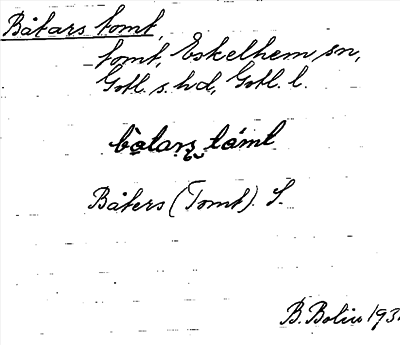 Båtars tomt,
tomt, Eskelhem sn,
Gotl. s. hd, Gotl. l.
båtarş tåmt
Båters (Tomt). S.
B. Bolin 193